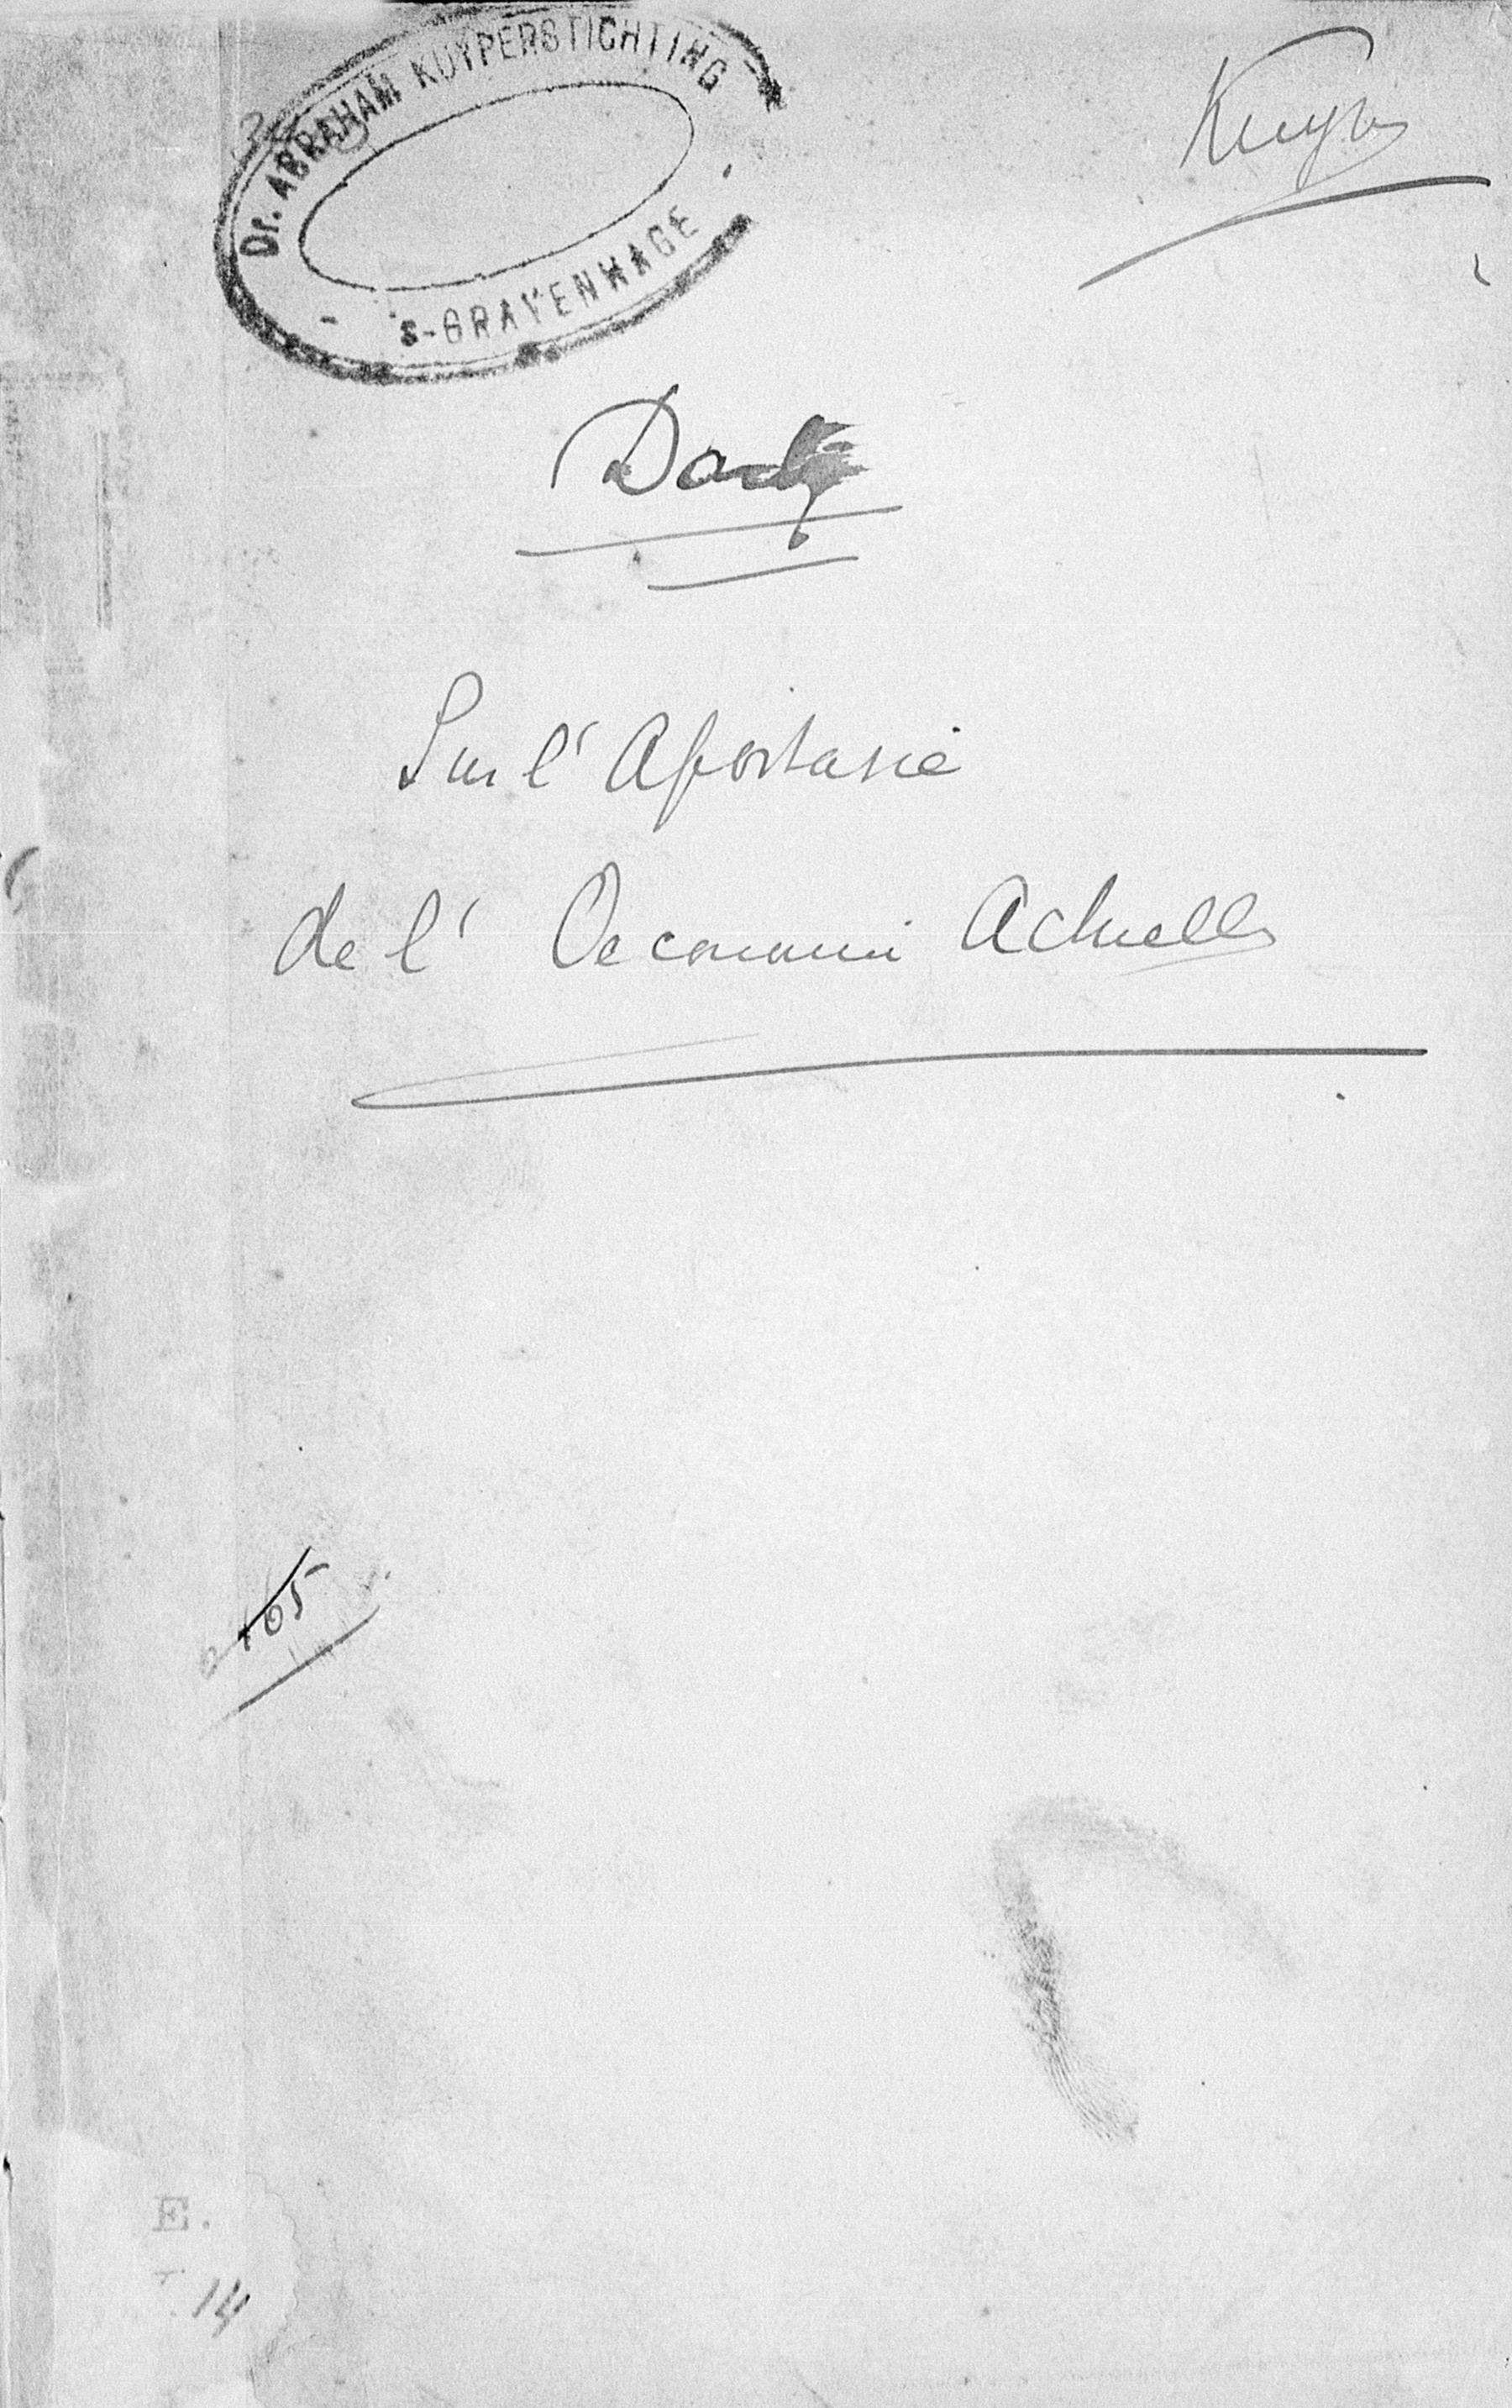 Dr. ABRAHAM KUYPERSTICHTING
'S-GRAVENHAGE
Kuyper
Darby
Sur l'Apostasie
de l' Oeconomie Actuelle
105
E.
14